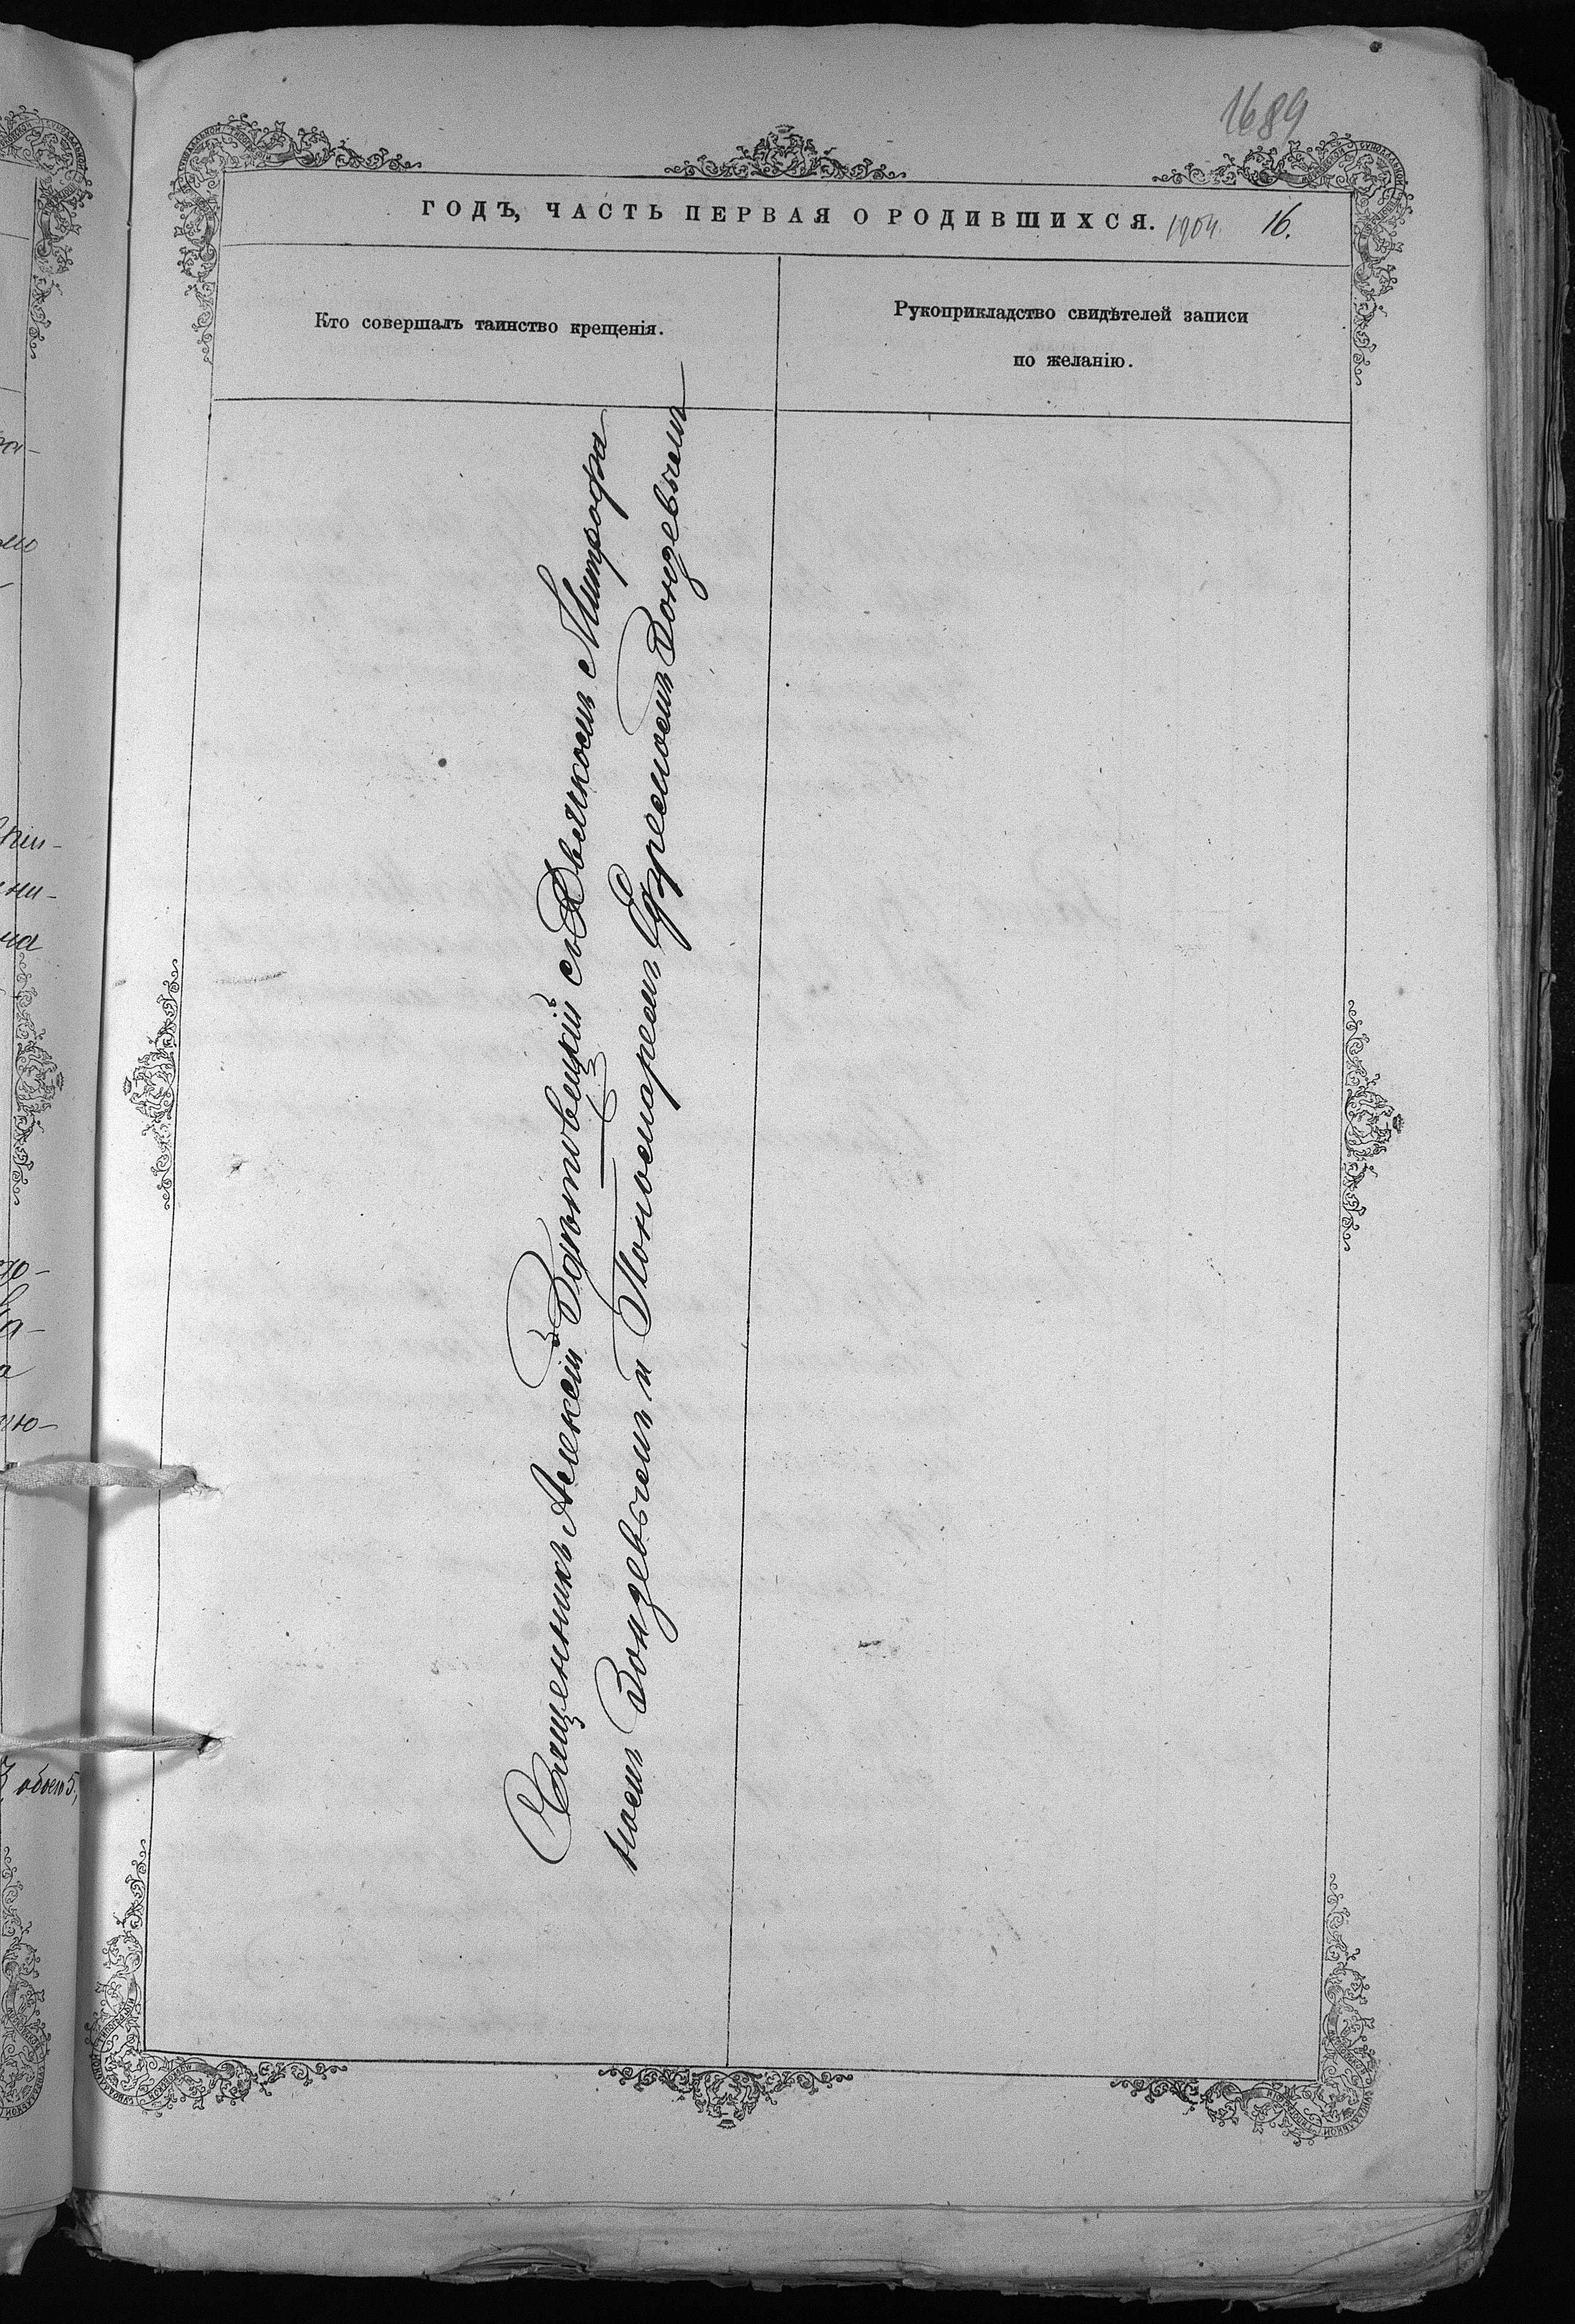 1689
ГОДЪ, ЧАСТЬ ПЕРВАЯ О РОДИВШИХСЯ. 1904. 16.
Кто совершалъ таинство крещенія.
Рукоприкладство свидѣтелей записи
по желанію.
Священникъ Алексій съ Дьячкомъ Митрофа
номъ Вондевычемъ и Пономаремъ Ефремомъ Вондевычемъ
обоего 5,